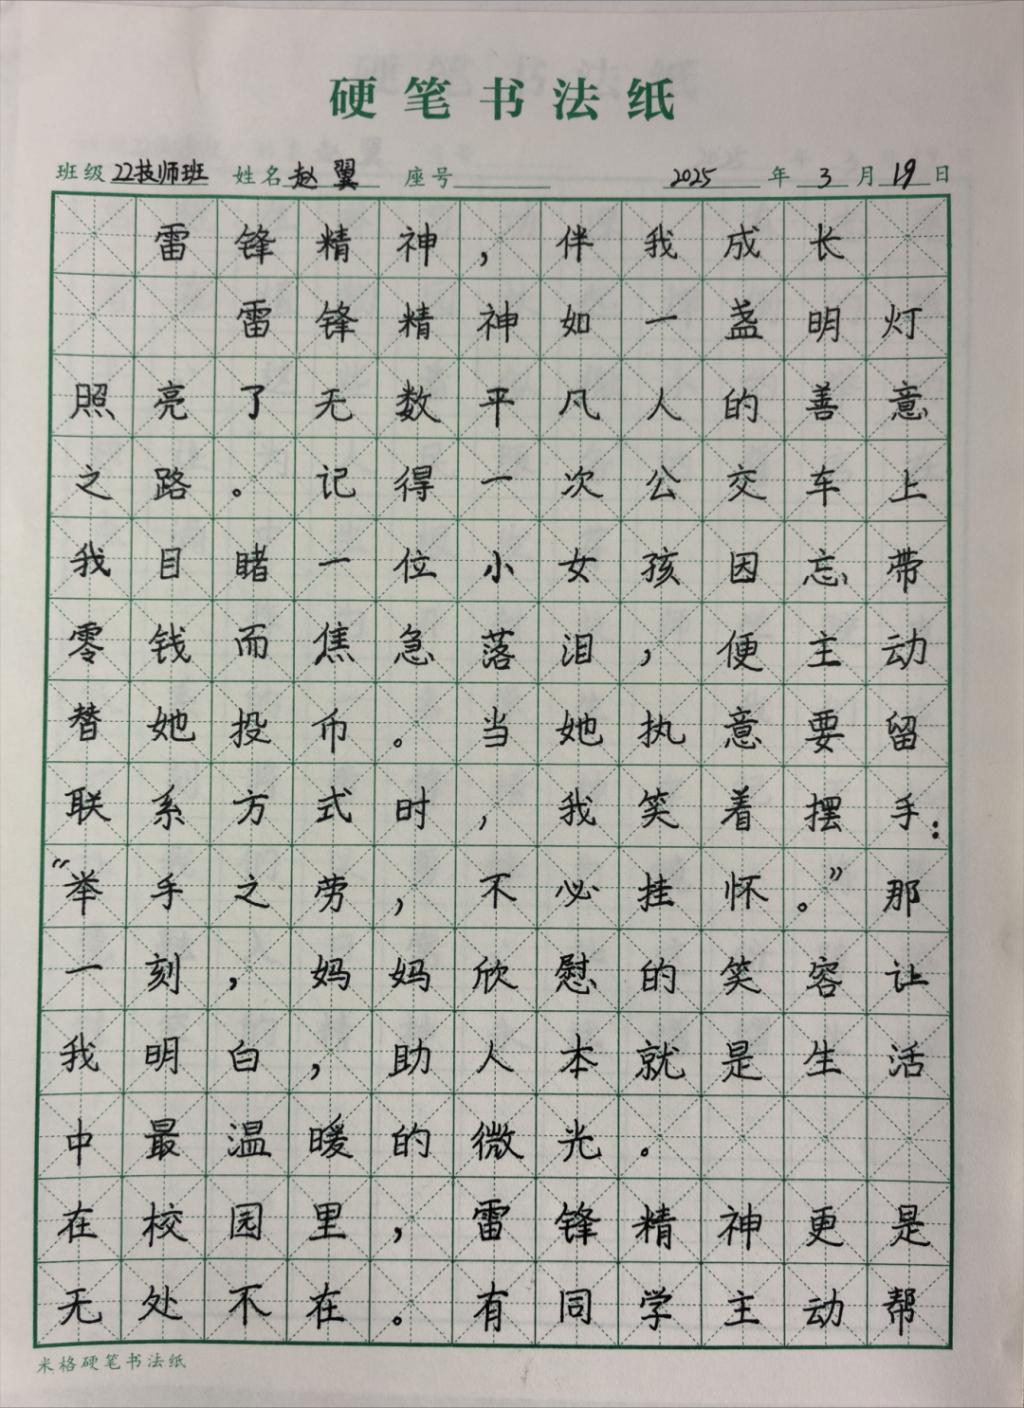 硬笔书法纸
班级 22技师班 姓名 赵翼 座号 2025 年 3 月 19 日
雷锋精神，伴我成长
雷锋精神如一盏明灯
照亮了无数平凡人的善意
之路。记得一次公交车上
我目睹一位小女孩因忘带
零钱而焦急落泪，便主动
替她投币。当她执意要留
联系方式时，我笑着摆手：
“举手之劳，不必挂怀。”那
一刻，妈妈欣慰的笑容让
我明白，助人本就是生活
中最温暖的微光。
在校园里，雷锋精神更是
无处不在。有同学主动帮
米格硬笔书法纸